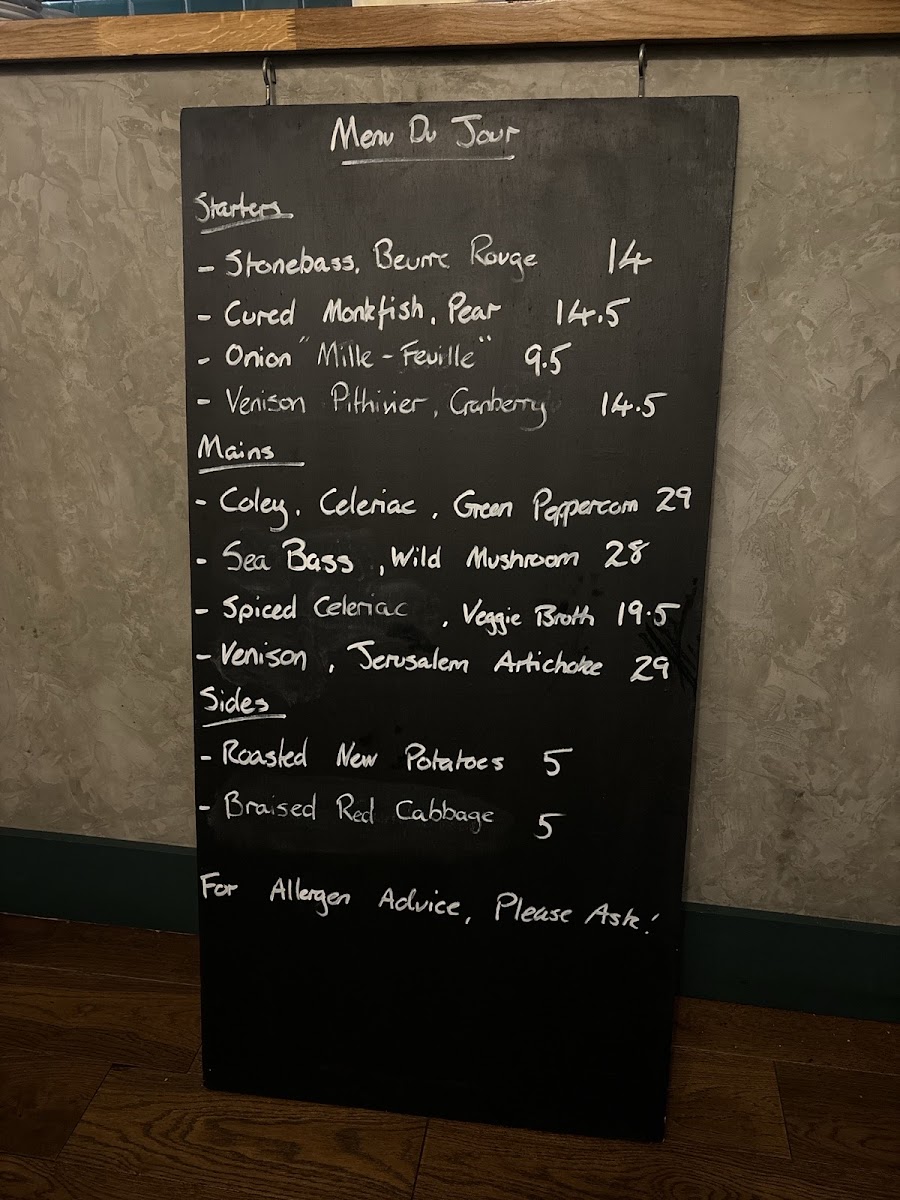 Menu Du Jour
Starters
- Stonebass, Beurre Rouge 14
- Cured Monkfish, Pear 14.5
- Onion "Mille-Feuille" 9.5
- Venison Pithivier, Cranberry 14.5
Mains
- Coley, Celeriac, Green Peppercorn 29
- Sea Bass, Wild Mushroom 28
- Spiced Celeriac, Veggie Broth 19.5
- Venison, Jerusalem Artichoke 29
Sides
- Roasted New Potatoes 5
- Braised Red Cabbage 5
For Allergen Advice, Please Ask!